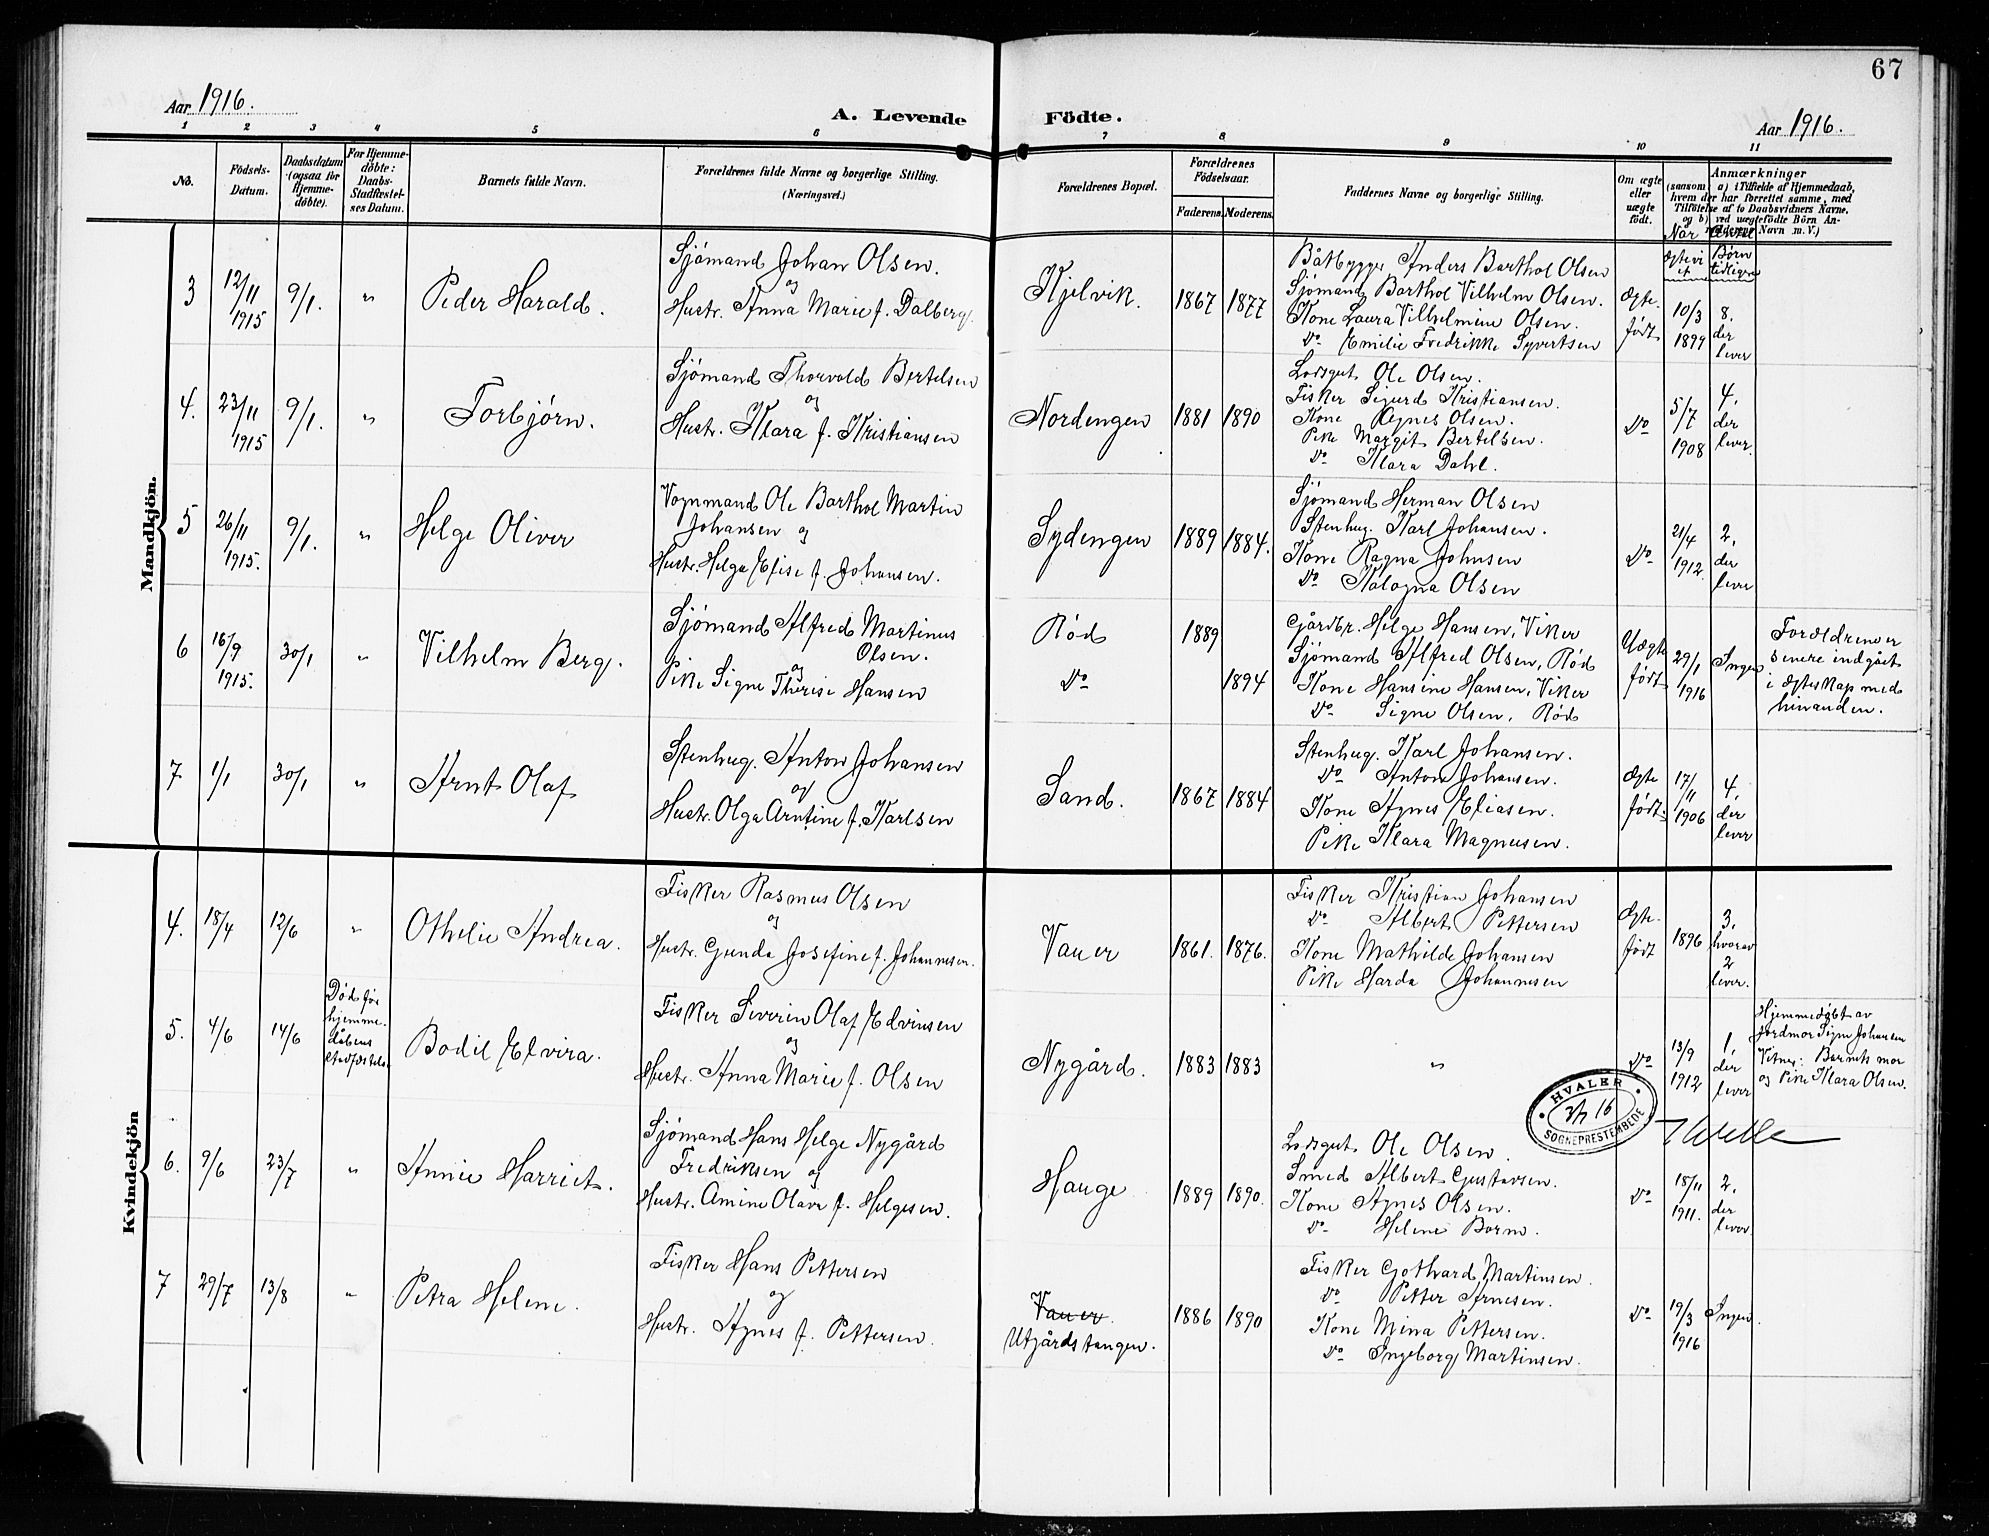 67
Aar 1916.
A. Levende Födte.
Aar 1916.
1 2 3 4 5 6 7 8 9 10 11
No.
Födsels-
Datum.
Daabsdatum
(ogsaa for
Hjemme-
döbte).
For Hjemme-
döbte:
Daabs-
Stadfæstel-
ses Datum.
Barnets fulde Navn.
Forældrenes fulde Navne og borgerlige Stilling.
(Næringsvei.)
Forældrenes Bopæl.
Forældrenes
Födselsaar.
Faderens. Moderens.
Faddernes Navne og borgerlige Stilling.
Om ægte
eller
uægte
födt.
Anmærkninger
(saasom a) i Tilfælde af Hjemmedaab,
hvem der har forrettet samme, med
Tilföielse af to Daabsvidners Navne,
og b) ved uægtefödte Börn An-
Navn m. V.)
Når
Børn
tidligere
Mandkjön.
3
12/11
1915
9/1.
"
Peder Harald.
Sjömand Johan Olsen.
og
Hustr. Anna Marie f. Dalberg.
Kjelvik.
1867
1877
Båtbygger Anders Barthol Olsen
Sjömand Barthol Vilhelm Olsen.
Kone Laura Vilhelmine Olsen.
Do Emilie Fredrikke Syvertsen
Ægte
født
10/3
1899
8.
der
lever
4.
23/11
1915
9/1.
"
Torbjørn.
Sjömand Thorvald Bertelsen
og
Hustr. Klara f. Kristiansen
Nordengen
1881
1890
Lodsgut Ole Olsen.
Fisker Sigurd Kristiansen.
Kone Agnes Olsen.
Pike Margit Bertelsen.
Do Klara Dahl.
Do
5/7
1908
4.
der
lever.
5
26/11
1915.
9/1.
"
Helge Oliver
Vognmand Ole Barthol Martin
Johansen og
Hustr. Helga Elise f. Johansen.
Sydengen
1889
1884.
Sjömand Herman Olsen
Stenhug. Karl Johansen.
Kone Ragna Johnsen
Do Kalogna Olsen
Do
21/4
1912.
2.
der
lever
6
16/9
1915.
30/1
"
Vilhelm Berg.
Sjömand Alfred Martinus
Olsen.
og
Pike Signe Therese Hansen
Rød
Do
1889
1894
Gårdbr. Helge Hansen, Viker
Sjömand Alfred Olsen, Rød
Kone Hansine Hansen, Viker
Do Signe Olsen, Rød
Uægte
født
29/1
1916
Ingen
Forældrene er
senere indgået
i ægteskap med
hinanden.
7
1/1
30/1
"
Arnt Olaf
Stenhug. Anton Johansen
og
Hustr. Olga Arntine f. Karlsen
Sand.
1867
1884
Stenhug. Karl Johansen.
Do Anton Johansen.
Kone Agnes Eliasen.
Pike Klara Magnusen.
Ægte
født
17/11
1906
4.
der
lever
Kvindekjön
4.
18/4
12/6
"
Othelie Andrea.
Fisker Rasmus Olsen
og
Hustr. Gunda Josefine f. Johannesen.
Vauer
1861.
1876.
Fisker Kristian Johansen
Do Albert Pettersen
Kone Mathilde Johansen
Pike Harda Johannesen
Ægte
født
1896
3.
hvorav
2
lever.
5.
4/6
14/6
Død før
hjemme-
dåbens
stadfæstelse
Bodil Elvira.
Fisker Severin Olaf Edvinsen
og
Hustr. Anna Marie f. Olsen
Nygård.
1883
1883
"
Do
13/9
1912
1.
der
lever
Hjemmedøbt av
Jordmor Signe Johansen
Vitner: Barnets mor
og Pike Klara Olsen.
HVALER
16
SOGNEPRESTEMBEDE
6.
9/6
23/7
"
Annie Harriet.
Sjömand Hans Helge Nygård
Fredriksen og
Hustr. Amine Olava f. Helgesen.
Hauge
1889
1890.
Lodsgut Ole Olsen.
Smed Albert Gustavsen.
Kone Agnes Olsen.
Do Helene Borm.
Do
18/11
1911.
2.
der
lever
7
29/7
13/8
"
Petra Helene.
Fisker Hans Pettersen
og
Hustr. Agnes f. Pettersen.
Vauer.
Utgårdstangen.
1886
1890
Fisker Gothard Martinsen.
Do Petter Arnesen.
Kone Mina Pettersen.
Do Ingeborg Martinsen.
Do
19/3
1916
Ingen.